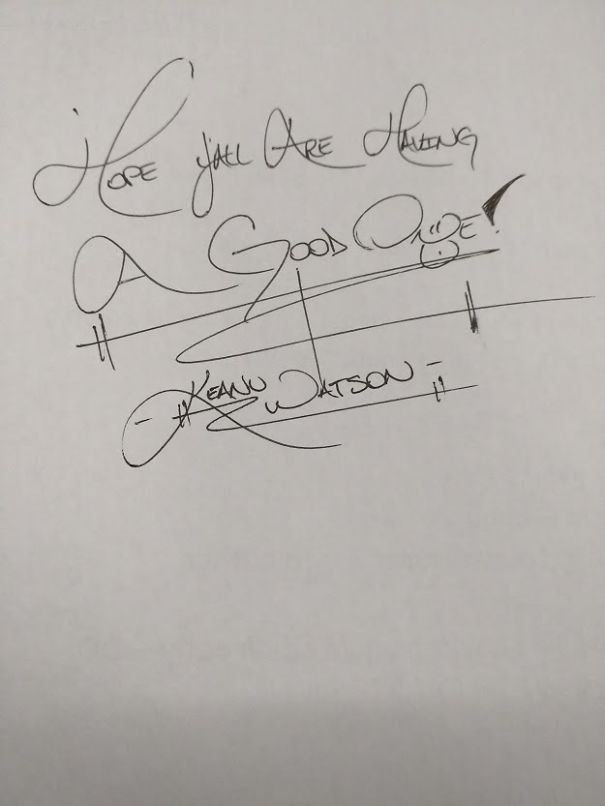 Hope y'all Are Having
A Good One!
- Keanu Watson -